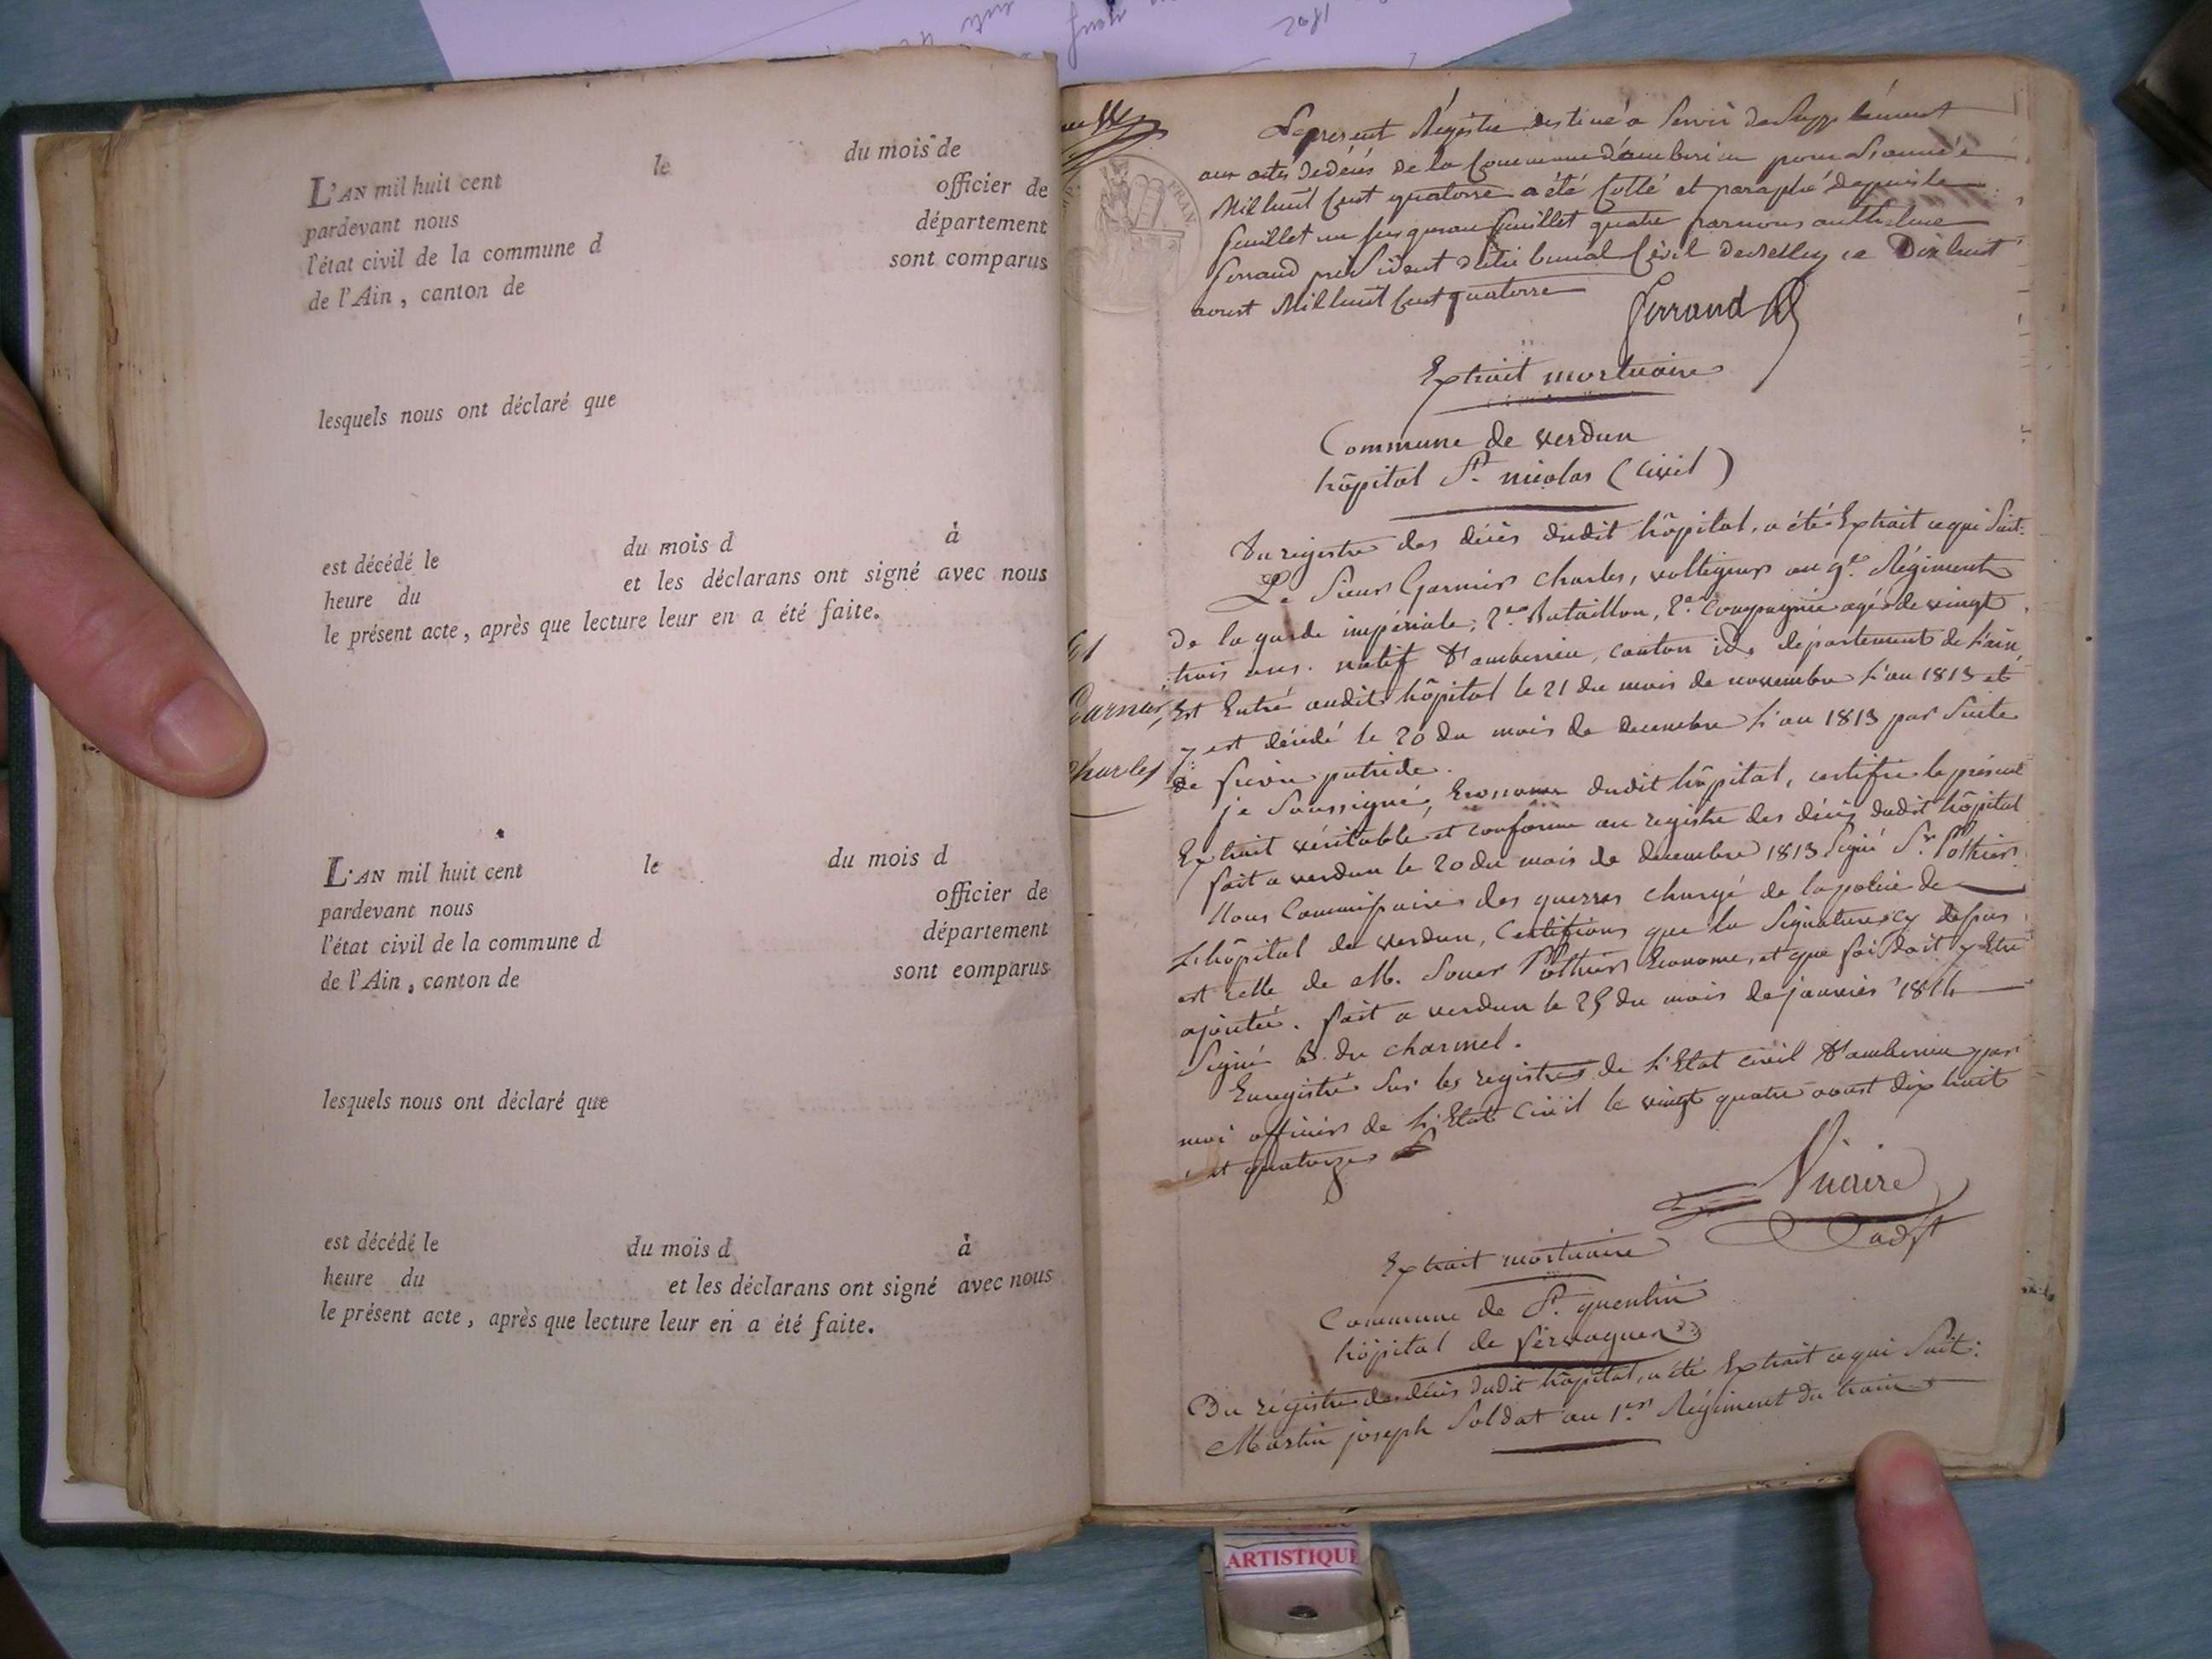 L'AN mil huit cent le du mois de
pardevant nous officier de
l'état civil de la commune d département
de l'Ain, canton de sont comparus
lesquels nous ont déclaré que
est décédé le du mois d à
heure du et les déclarans ont signé avec nous
le présent acte, après que lecture leur en a été faite.
L'AN mil huit cent le du mois d
pardevant nous officier de
l'état civil de la commune d département
de l'Ain, canton de sont eomparus
lesquels nous ont déclaré que
est décédé le du mois d à
heure du et les déclarans ont signé avec nous
le présent acte, après que lecture leur en a été faite.
Le present Régistre destiné a Servir de Supplément
aux actes de décés de la Commune d'amberieu pour L'année
Mil huit Cent quatorze a été Cotté et paraphé depuis le
feuillet un jusqu'au feuillet quatre par nous anthelme
ferrand président du tribunal Civil de Belley ce Dix huit
aoust Mil huit Cent quatorze
ferrand
Extrait mortuaire
Commune de verdun
hôpital St. nicolas (civil)
Du registre des décès dudit hôpital, a été Extrait ce qui Suit:
Le Sieur Garnier Charles, voltigeur au 9e. Régiment
de la garde impériale, 2e. Bataillon, 2e. Compagnie agé de vingt
trois ans. natif d'amberieu, canton id. département de L'ain,
Est Entré audit hôpital le 21 du mois de novembre L'an 1813 et
y est décédé le 20 du mois de decembre L'an 1813 par Suite
de fievre putride.
Garnier
Charles
je Soussigné, Econome dudit hôpital, certifie le présent
Extrait véritable et conforme au registre des décès dudit hôpital
fait a verdun le 20 du mois de decembre 1813 Signé Sr. Pothier
Nous Commissaire des guerres chargé de la police de
L'hôpital de verdun, Certifions que la Signature cy dessus
est celle de M. Soeur Pothier Econome, et que foi doit y Etre
ajoutée. fait a verdun le 25 du mois de janvier 1814
Signé B. du charmel.
Enregistré Sur les registres de L'Etat civil d'amberieu par
moi officier de L'Etat Civil le vingt quatre aoust dix huit
cent quatorze
Vicaire
adjt
Extrait mortuaire
Commune de St. quentin
hôpital de fervaques
Du régistre des décès dudit hôpital, a été Extrait ce qui Suit:
Martin joseph Soldat au 1er. Régiment du train
FRAN
ARTISTIQUE